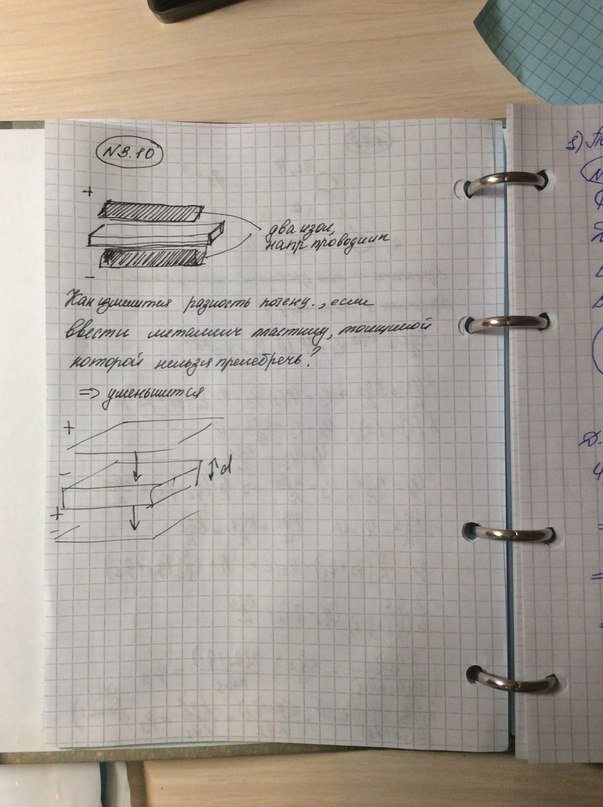 N3.10
+
два изол,
напр проводник
-
Как изменится разность потенц., если
ввести металлич пластину, толщиной
которой нельзя пренебречь?
=> уменьшится
+
-
d
+
-
3)